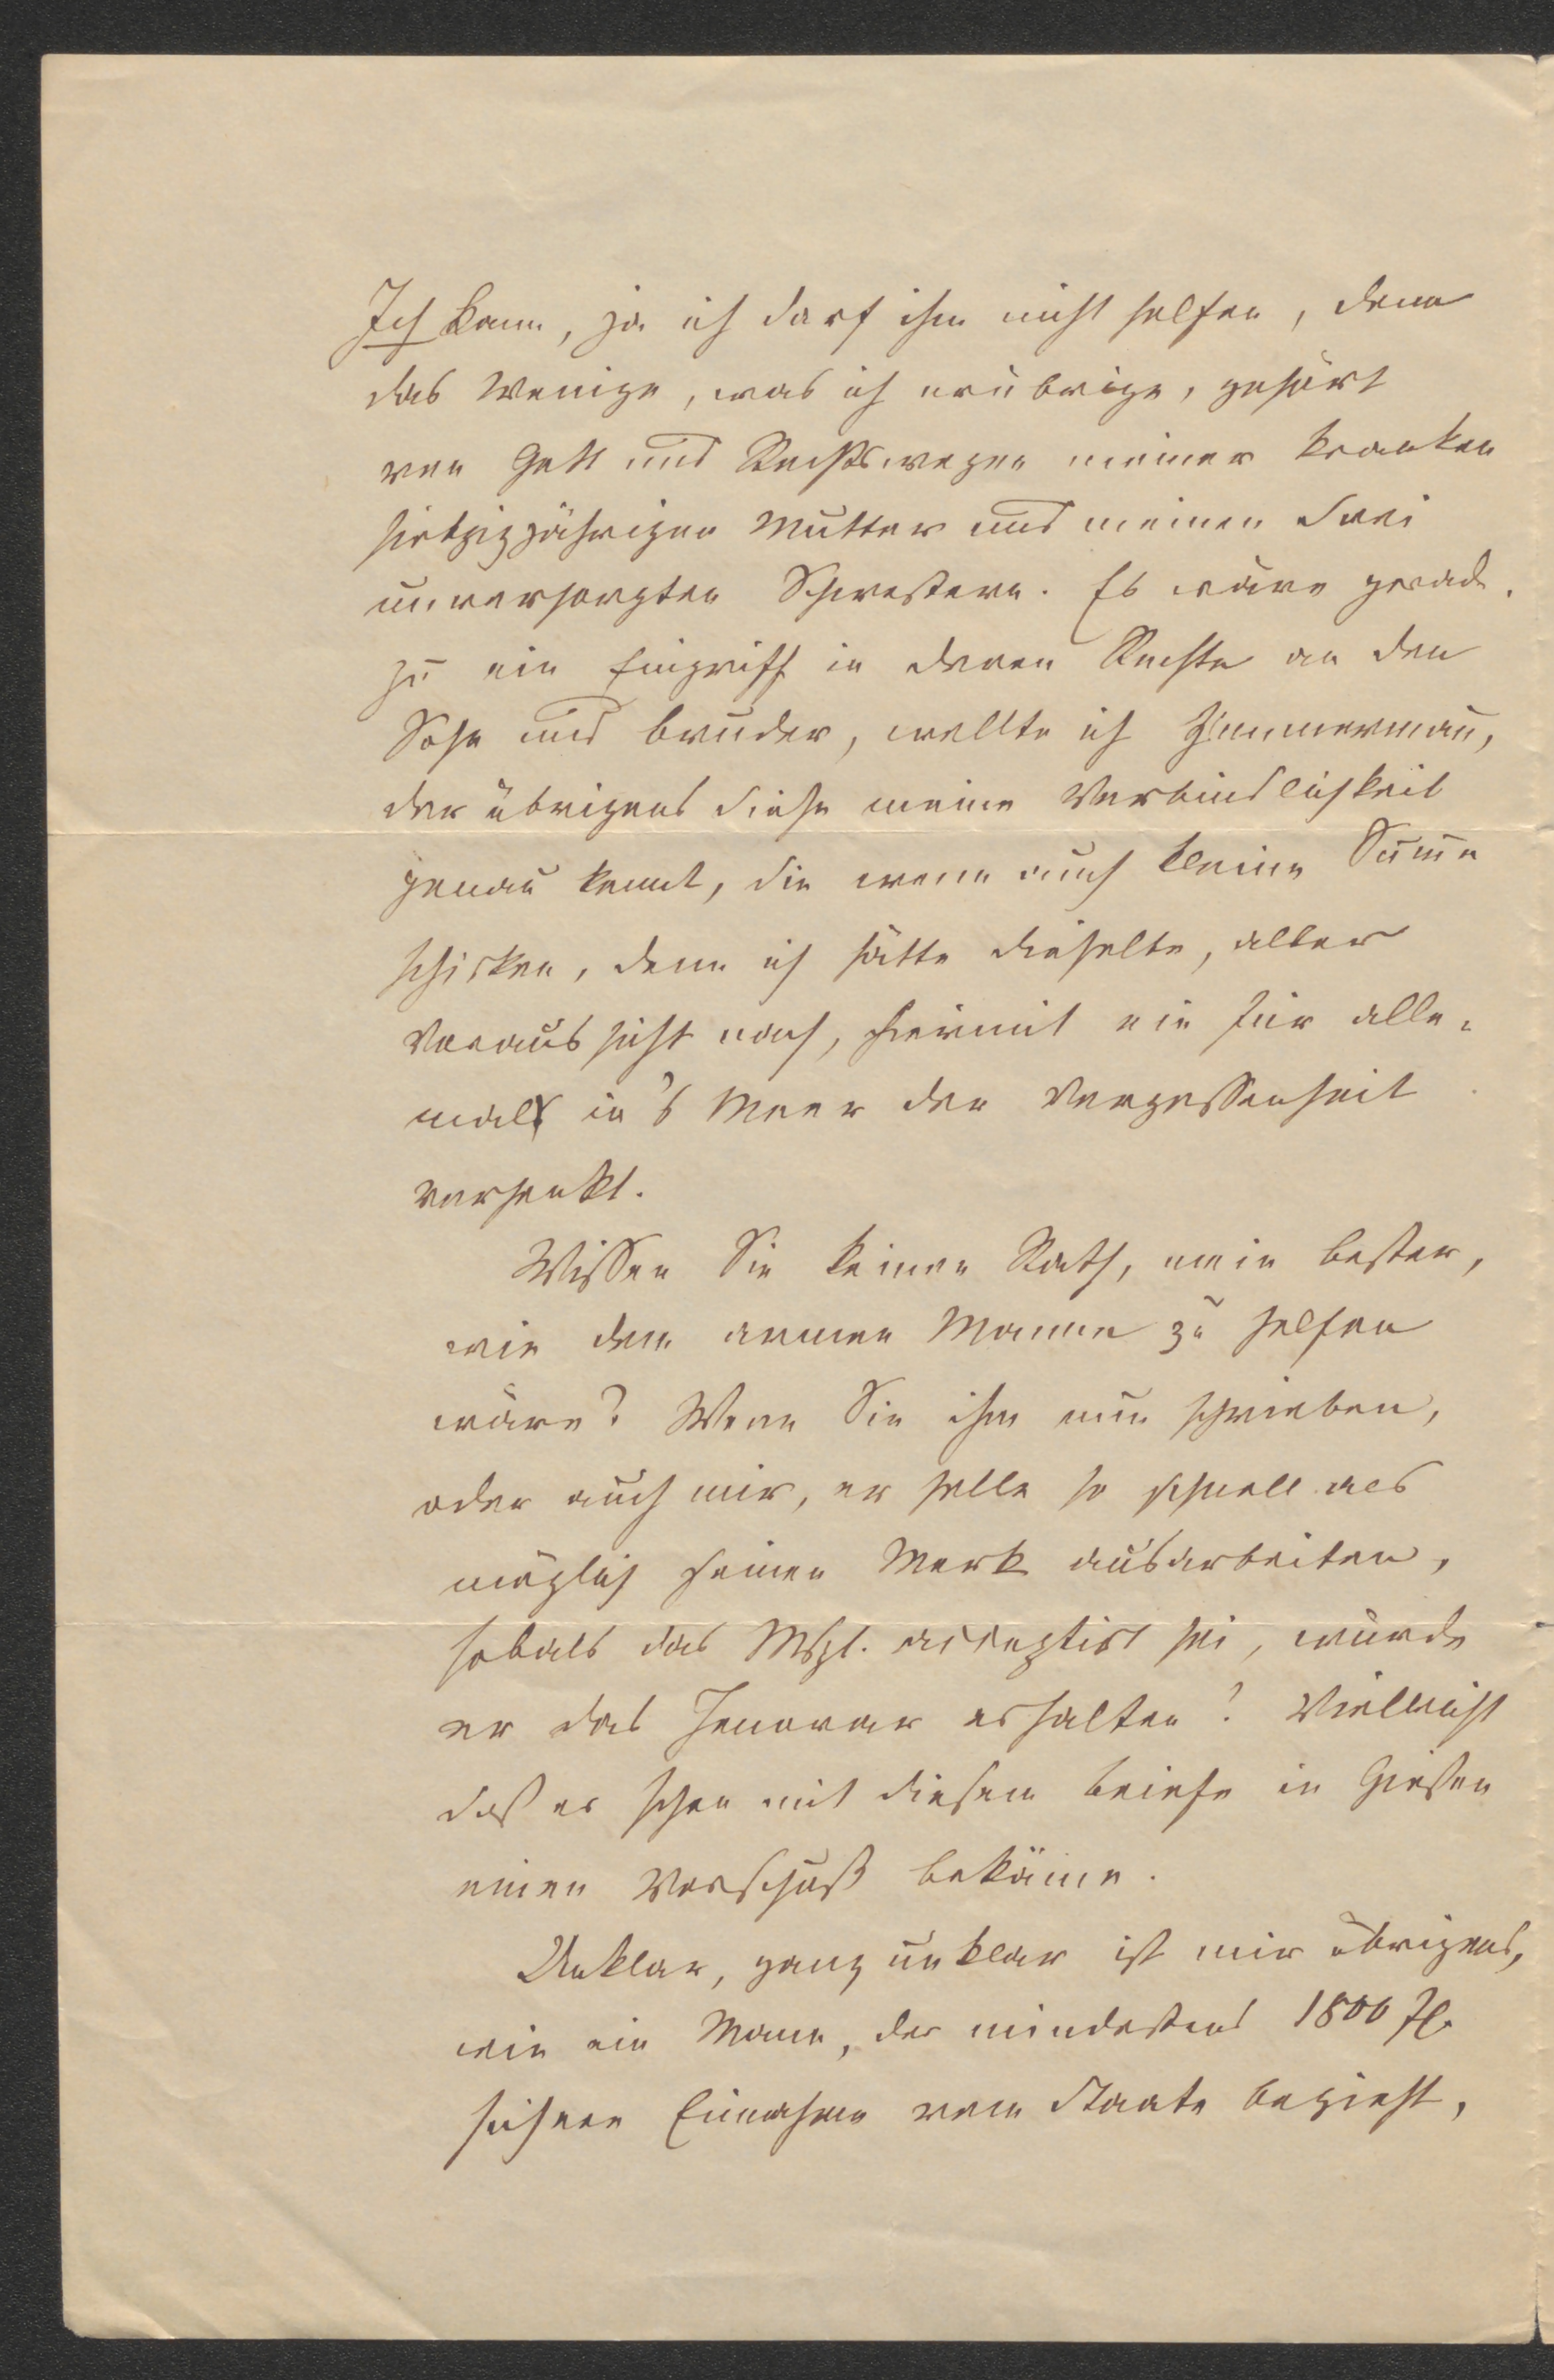 Ich kann, ja ich darf ihm nicht helfen, denn
das Wenige, was ich erübrige, gehört
von Gott und Rechtswegen meiner kranken
siebzigjährigen Mutter und meinen drei
unversorgten Schwestern. Es wäre gerade-
zu ein Eingriff in deren Rechte an den
Sohn und Bruder, wollte ich Zimmermann,
der übrigens diese meine Verbindlichkeit
genau kennt, die wenn auch kleine Summe
schicken, denn ich hätte dieselbe, aller
Voraussicht nach, hiermit ein für alle-
mal in's Meer der Vergessenheit
versenkt.
Wissen Sie keinen Rath, mein Bester,
wie dem armen Manne zu helfen
wäre? Wenn Sie ihm nun schrieben,
oder auch mir, er solle so schnell als
möglich seinen Merk ausarbeiten,
sobald das Mspt. acceptirt sei, würde
er das Honorar erhalten? Vielleicht
daß er schon mit diesem Briefe in Gießen
einen Vorschuß bekäme.
Unklar, ganz unklar ist mir übrigens,
wie ein Mann, der mindestens 1800 fl.
sichere Einnahme vom Staate bezieht,